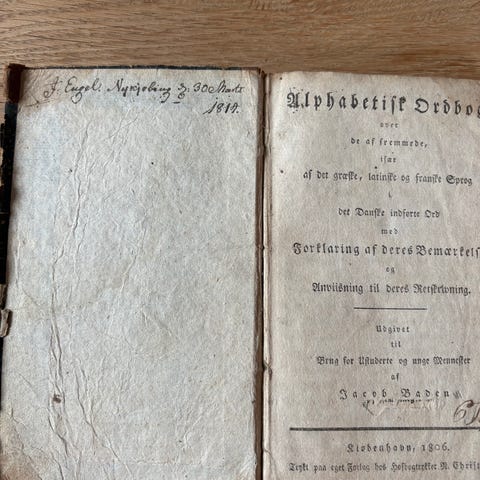 J. Engel. Nykjøbing 30 Marts
1814.
Alphabetisk Ordbog
over
de af fremmede,
især
af det græske, latinske og franske Sprog
i
det Danske indførte Ord
med
Forklaring af deres Bemærkels
og
Anviisning til deres Retskrivning.
Udgivet
til
Brug for Ustuderte og unge Mennesker
af
Jacob Baden
Kiøbenhavn, 1806.
Trykt paa eget Forlag hos Hofbogtrykker N. Christ